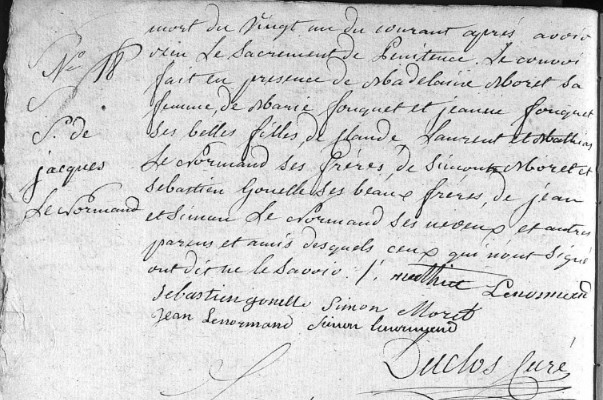 mort du vingt un du courant aprés avoir
reçu Le Sacrement de Penitence. Le convoi
fait en presence de Madelaine Moret sa
femme, de Marie fouquet et jeanne fouquet
ses belles filles, de Claude, Laurent et Mathias
Le Normand ses fréres, de Simon Moret et
sebastien Gonelle ses beaux fréres, de jean
et Simon Le Normand ses neveux et autres
parens et amis desquels ceux qui n'ont signé
ont dit ne le savoir ./.
Lenormand
sebastien gonelle Simon Moret
jean Lenormand simon lenormend
Duclos Curé
N.º 18
S. de
jacques
Le Normand